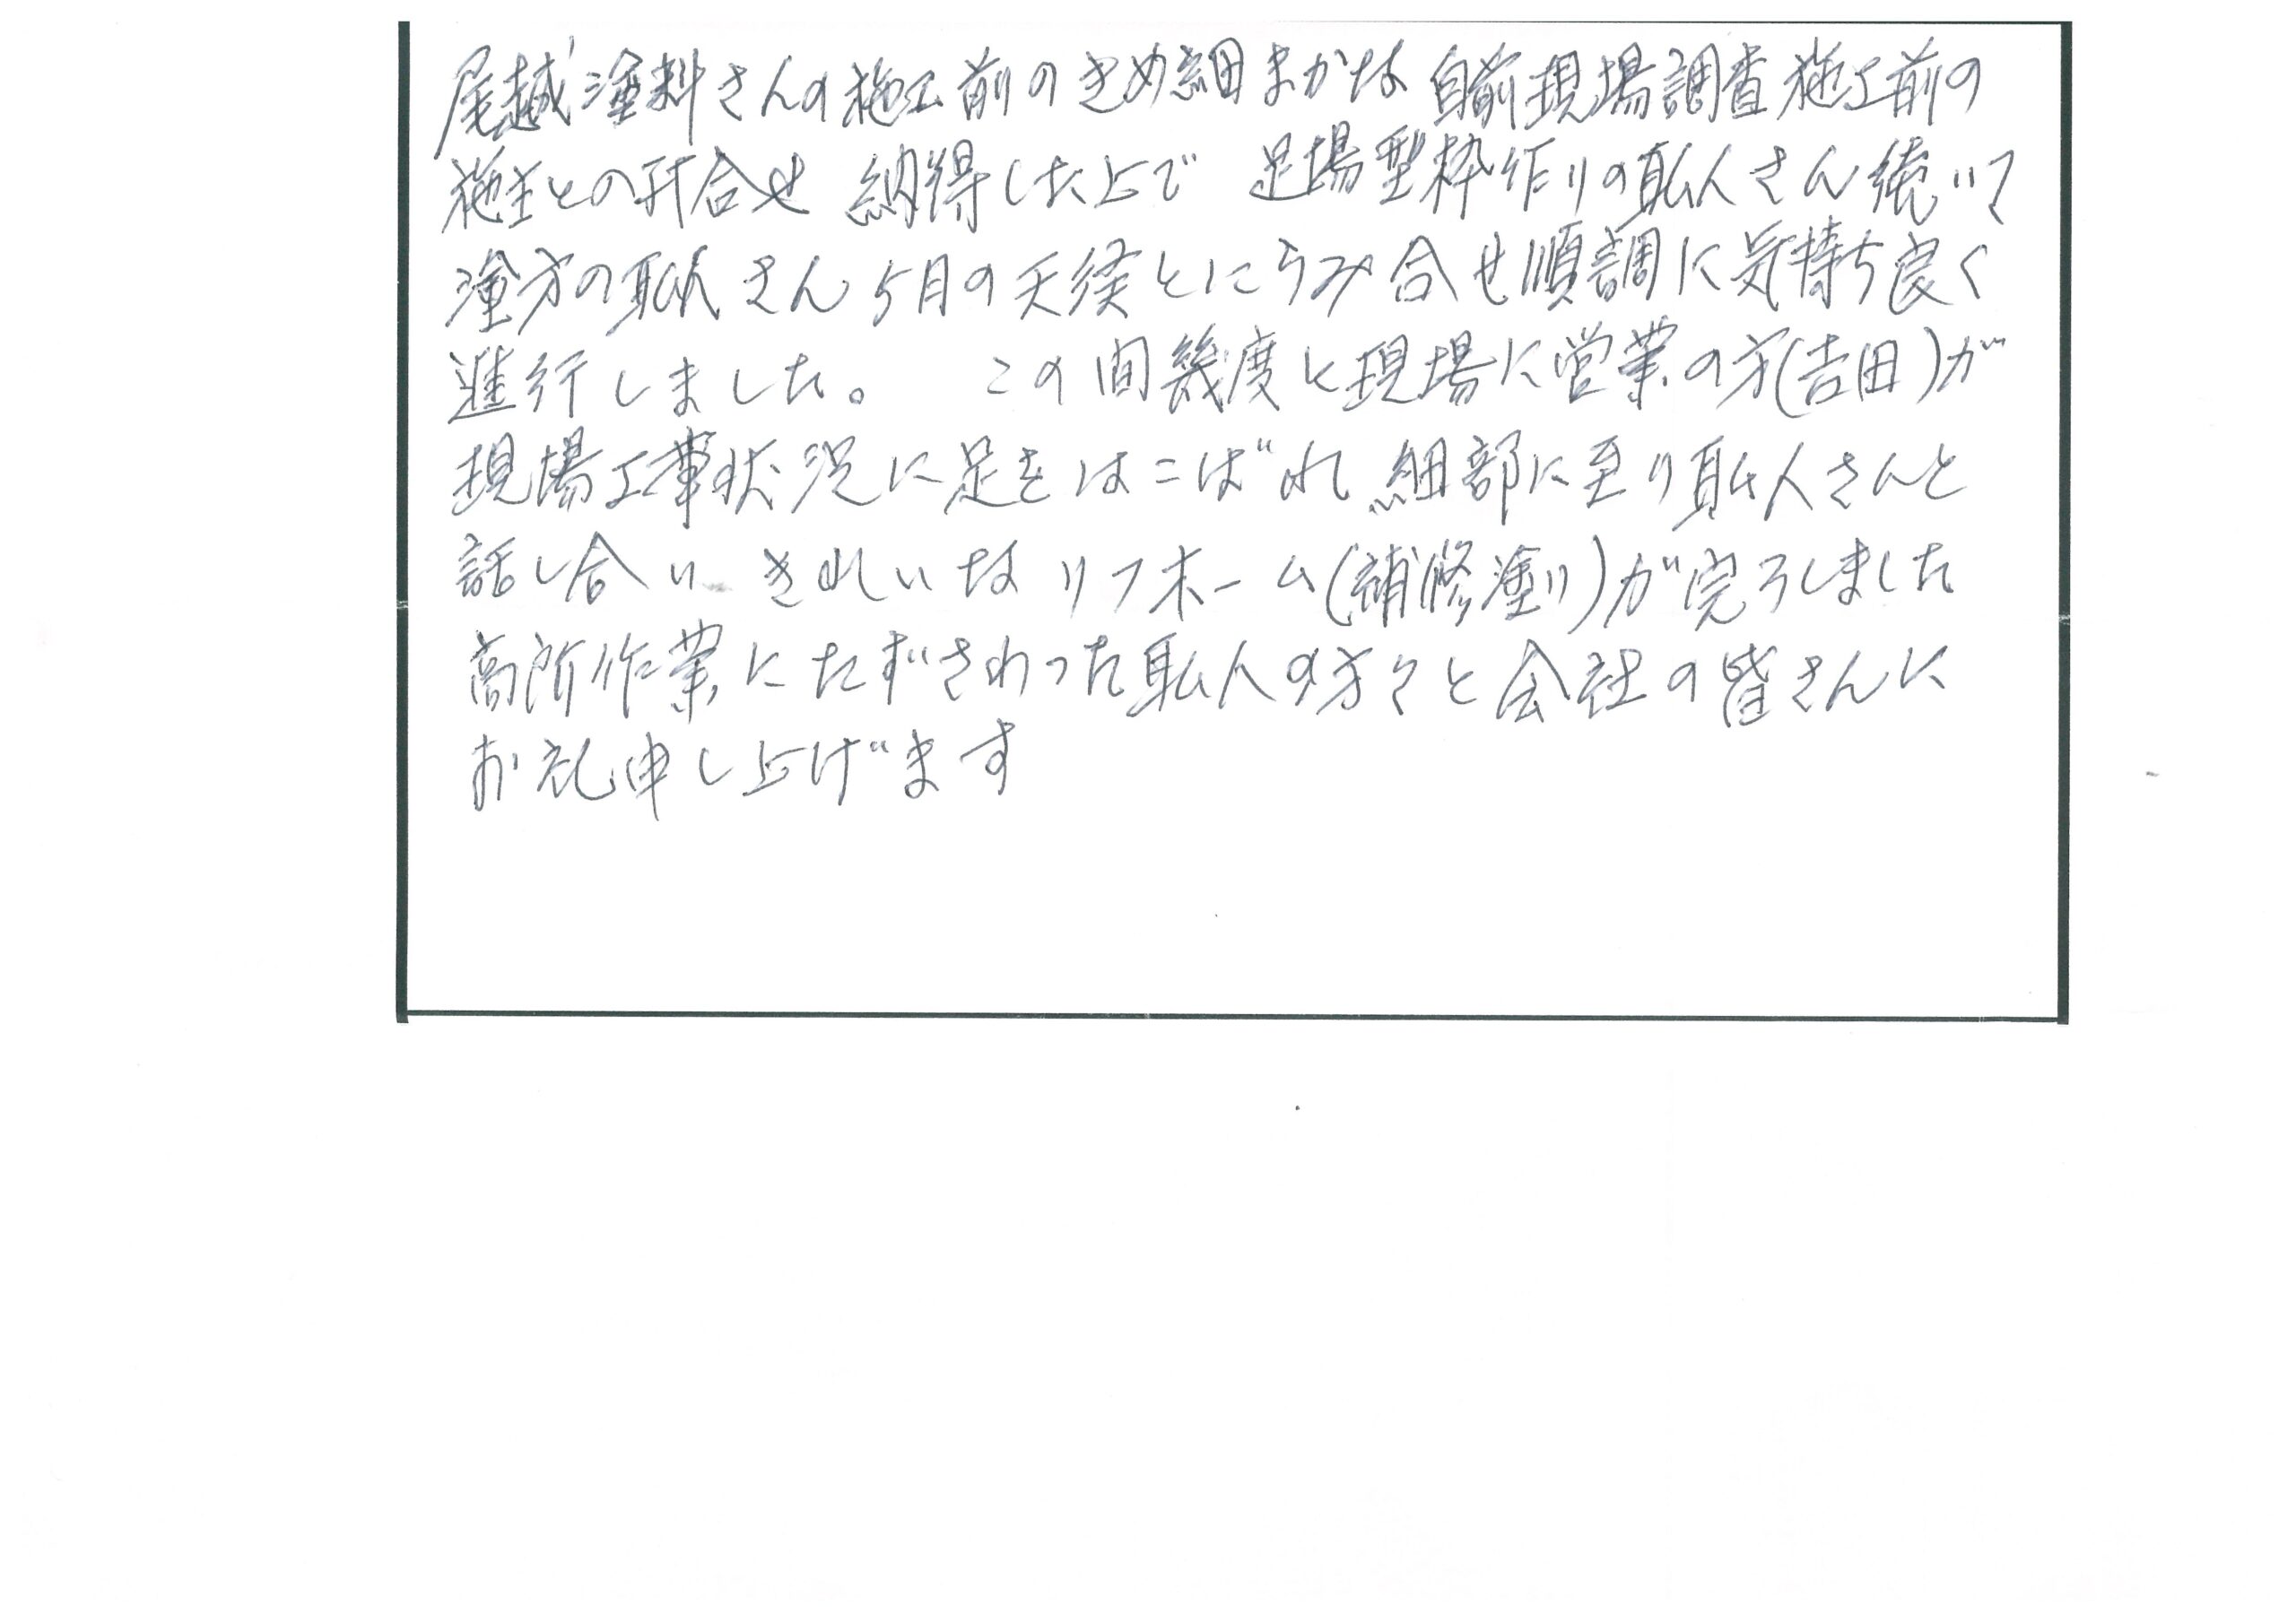 尾越塗料さんの施工前のきめ細まかな自前現場調査施工前の
施主との打合せ 納得した上で 足場型枠作りの職人さん続いて
塗方の職人さん5月の天候とにらみ合せ順調に気持ち良く
進行しました。 この間幾度と現場に営業の方(吉田)が
現場工事状況に足をはこばれ 細部に至り職人さんと
話し合い きれいなリフホーム(補修塗り)が完了しました
高所作業にたずさわった職人の方々と会社の皆さんに
お礼申し上げます